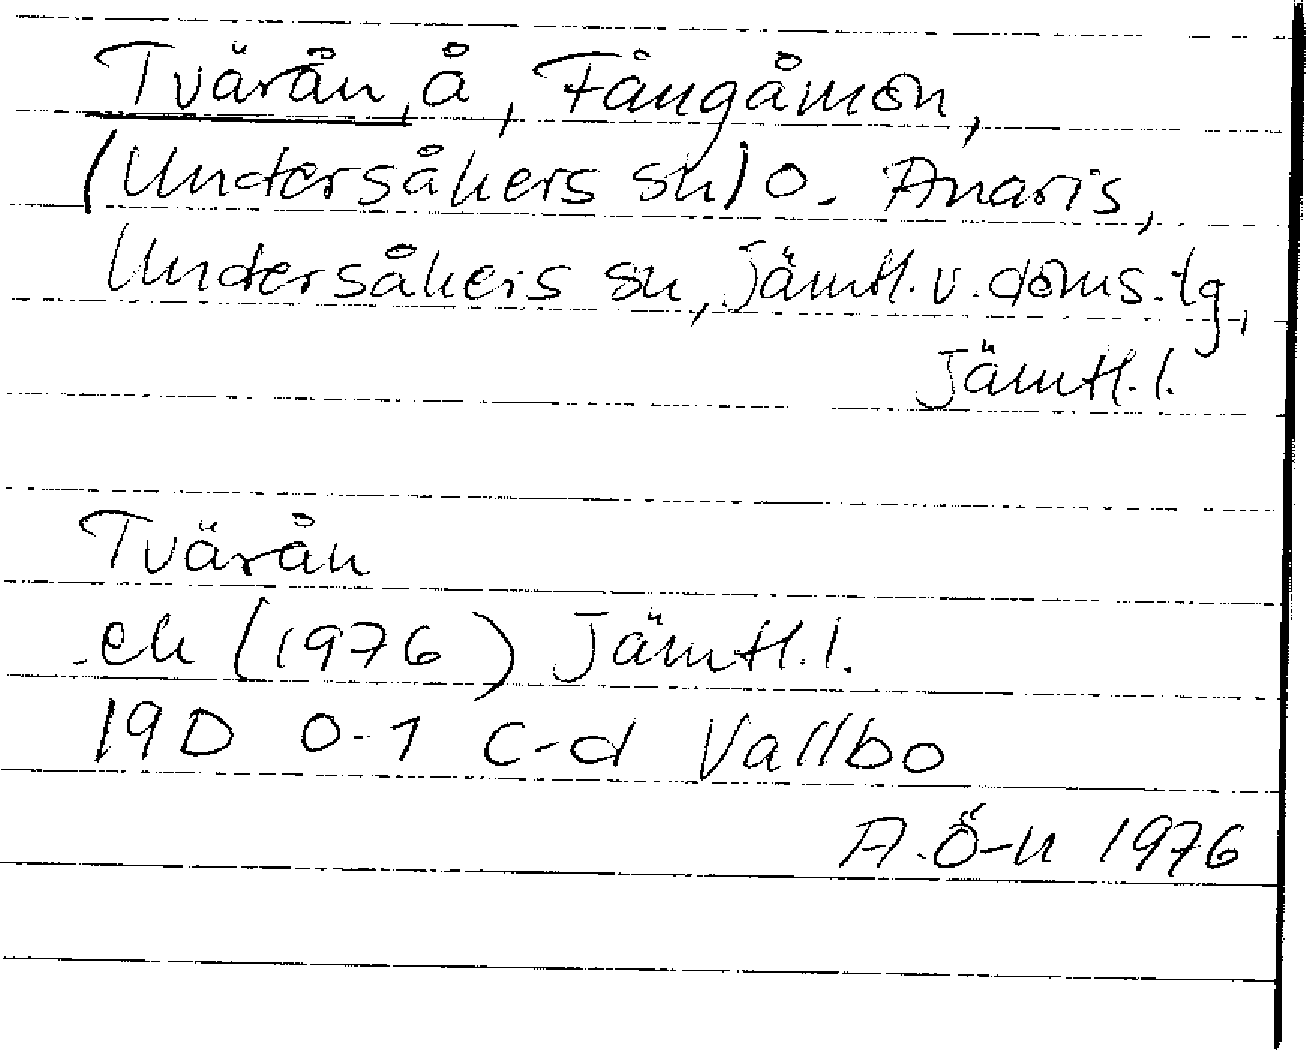 Tvärån, å, Fångåmon,
(Undersåkers sn) o. Anaris,
Undersåkers sn, Jämtl. v. doms.tg,
Jämtl. l.
Tvärån
ek (1976) Jämtl. l.
19D 0-1 c-d Vallbo
A. Ö-n 1976